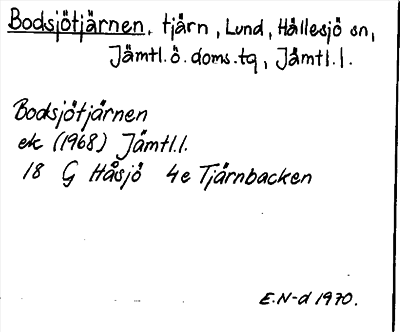 Bodsjötjärnen, tjärn, Lund, Hällesjö sn,
Jämtl.ö.doms.tg, Jämtl.l.
Bodsjötjärnen
ek (1968) Jämtl.l.
18 G Håsjö 4e Tjärnbacken
E.N-d 1970.